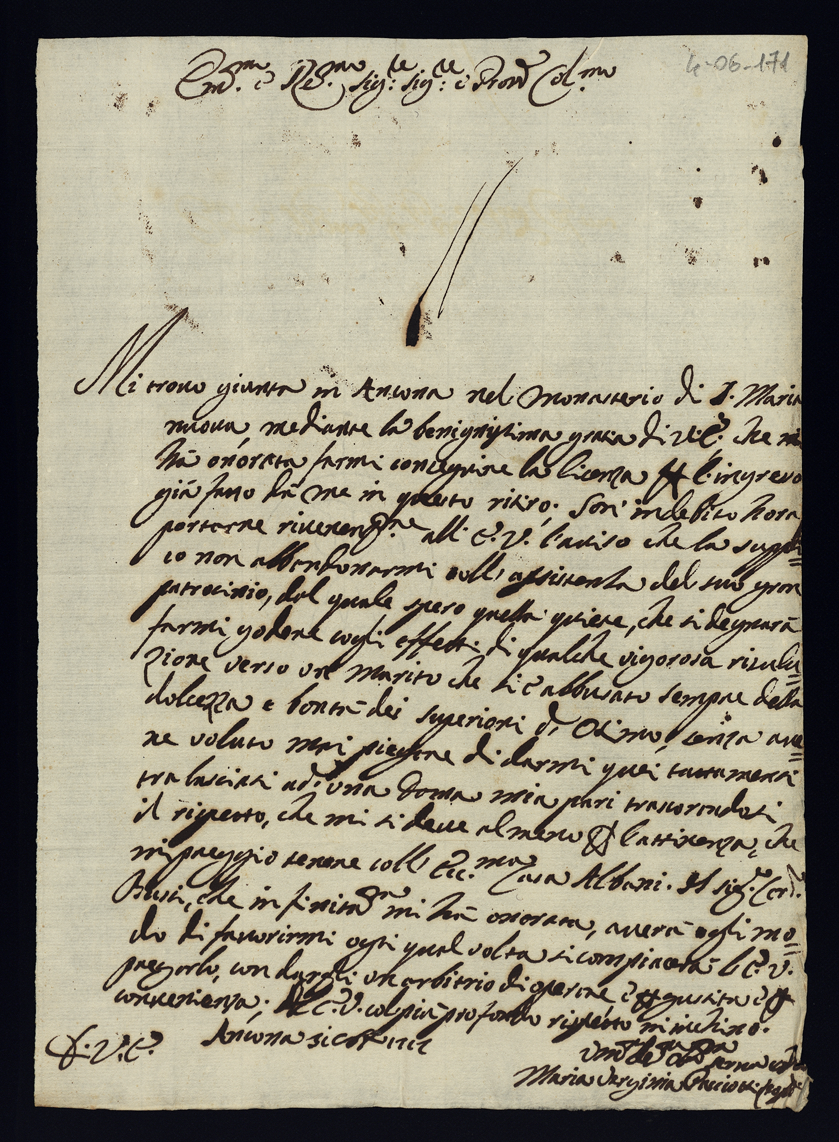 4-06-171
Em.mo e Re.mo Sig.re Sig.re e Pron Col.mo
Mi trovo giunta in Ancona nel Monasterio di S. Maria
nuova, mediante la benignissima gratia di V.E. che m
hà onorata farmi conseguire la licenza l'ingresso
già fatto dà me in questo ritiro. Son' in debito hora
portarne riverent.me all' E.V. l'aviso che la suppli=
co non abbandonarmi coll' assistenza del suo gran
patrocinio, dal quale spero quella quiete, che si degnarà
farmi godere cogli effetti di qualche vigorosa risolu=
zione verso un Marito che si è abbusato sempre della
dolcezza e bontà dei superiori d' Osimo, senza ave=
re voluto mai piegare di darmi quei trattamenti
tralasciati ad una Donna mia pari trascorandosi
il rispetto, che mi si deve almeno l'attinenza, che
mi preggio tenere coll' Ecc.ma Casa Albani. Il Sig.r Car.
Bussi, che infinita.me mi hà onorata, averà ogli mo=
do di favorirmi ogni qual volta si compiacerà l'E.V.
pregarlo, con dargli un arbitrio di operare è giustitia è
convenienza. All' E.V. col più profondo rispetto m'inchino.
D. V.E. Ancona
Um.
Maria Virginia